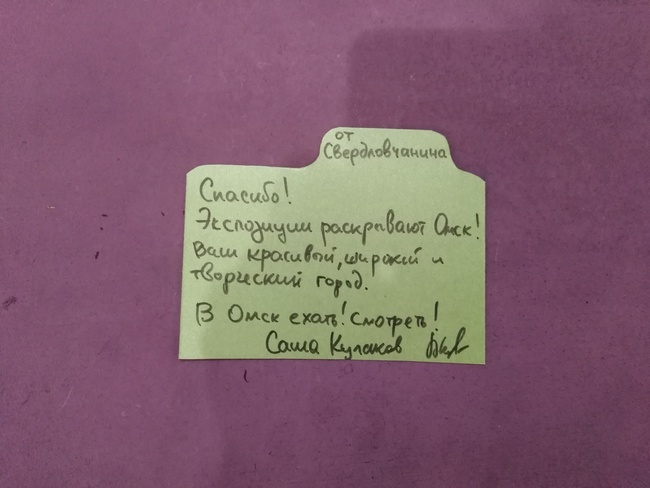 от
Свердловчанина
Спасибо!
Экспозиции раскрывают Омск!
Ваш красивый, широкий и
творческий город.
В Омск ехать! Смотреть!
Саша Кулаков